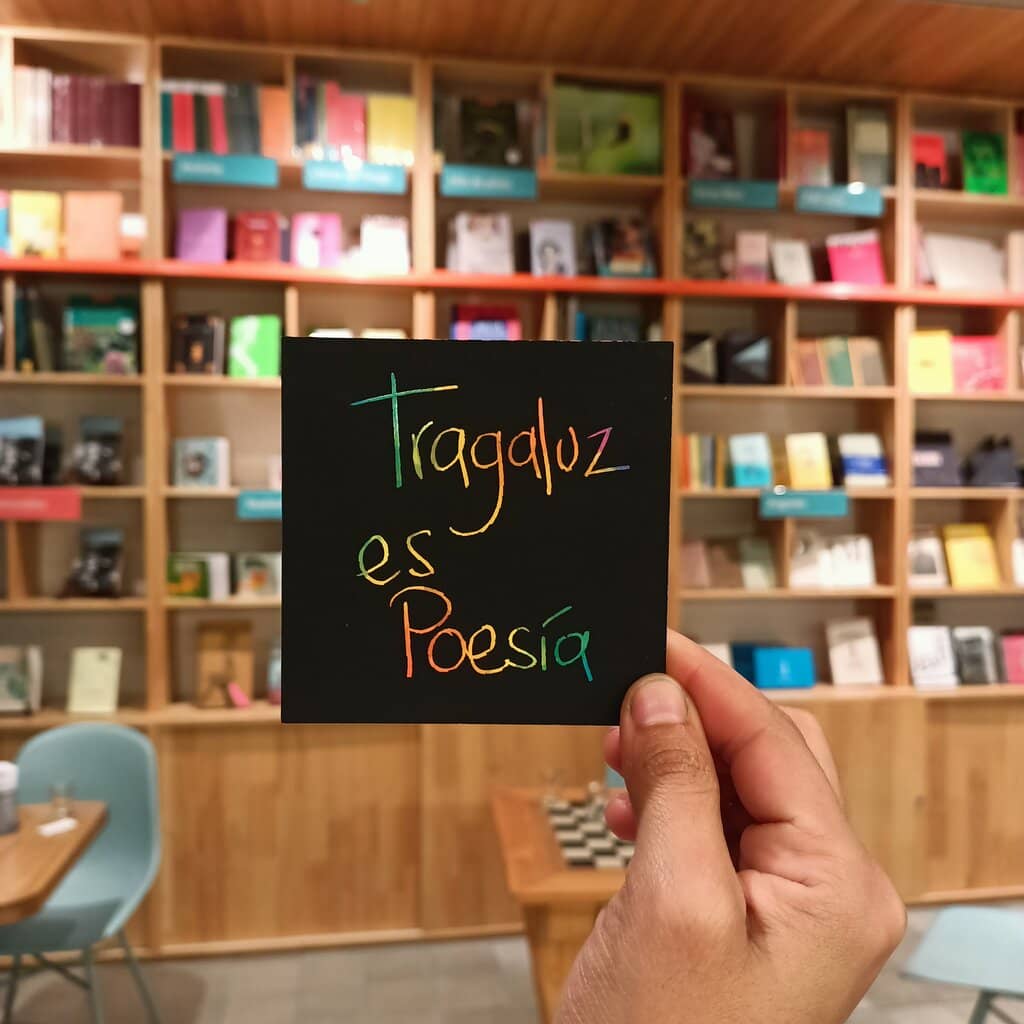 Tragaluz
es
Poesía